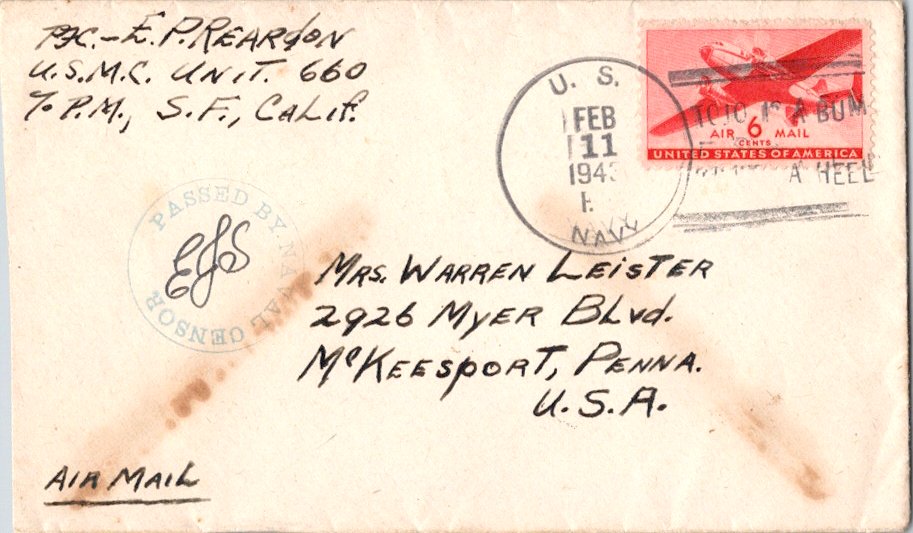 Pfc.- E. P. REARDON
U.S.M.C. UNIT. 660
% P.M., S.F., CALIF.
U. S.
FEB
11
1943
NAVY
TOJO IS A BUM
A HEEL
AIR 6 MAIL
CENTS
UNITED STATES OF AMERICA
PASSED BY NAVAL CENSOR
EJS
MRS. WARREN LEISTER
2926 MYER BLVD.
McKEESPORT, PENNA.
U.S.A.
AIR MAIL